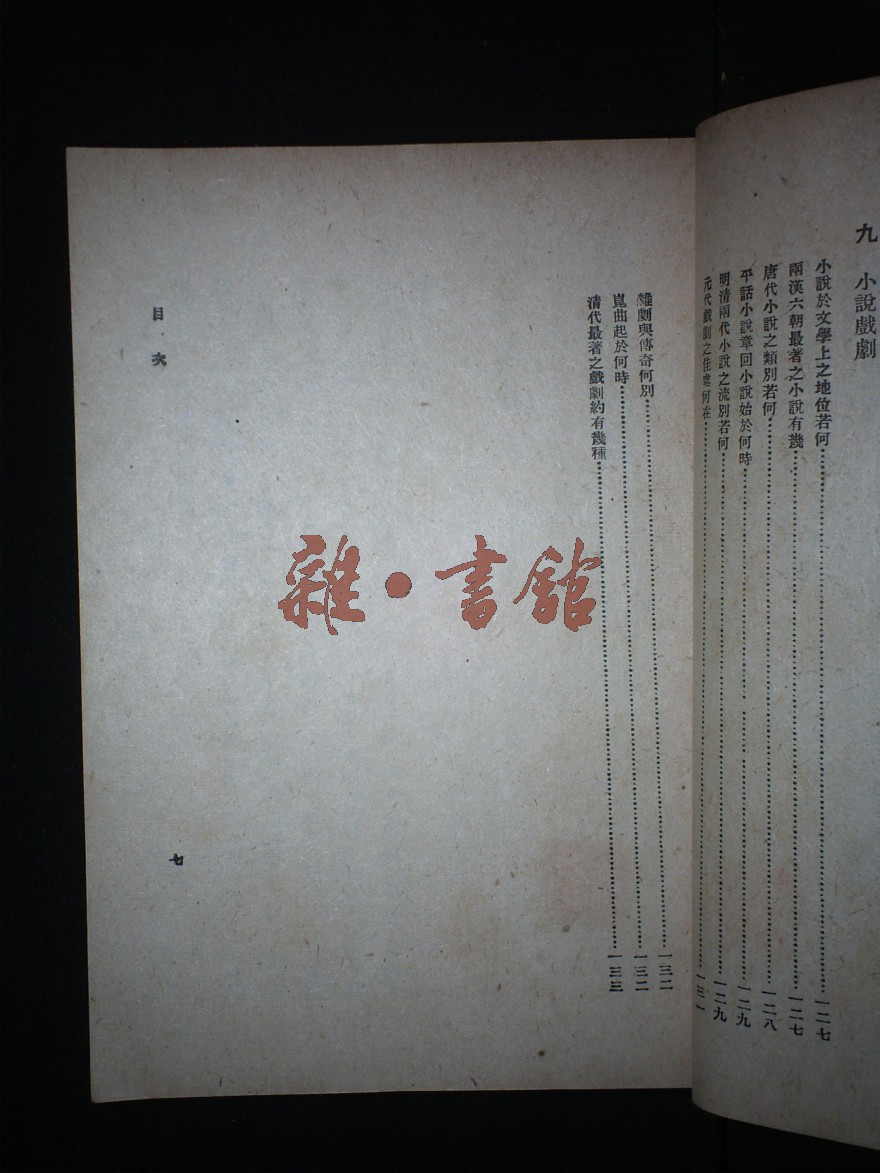 九　小說戲劇
小說於文學上之地位若何……一二七
兩漢六朝最著之小說有幾……一二七
唐代小說之類別若何……一二八
平話小說章回小說始於何時……一二九
明清兩代小說之流別若何……一二九
元代戲劇之佳處何在……一三一
雜劇與傳奇何別……一三二
崑曲起於何時……一三二
清代最著之戲劇約有幾種……一三三
目次
七
雜·書館